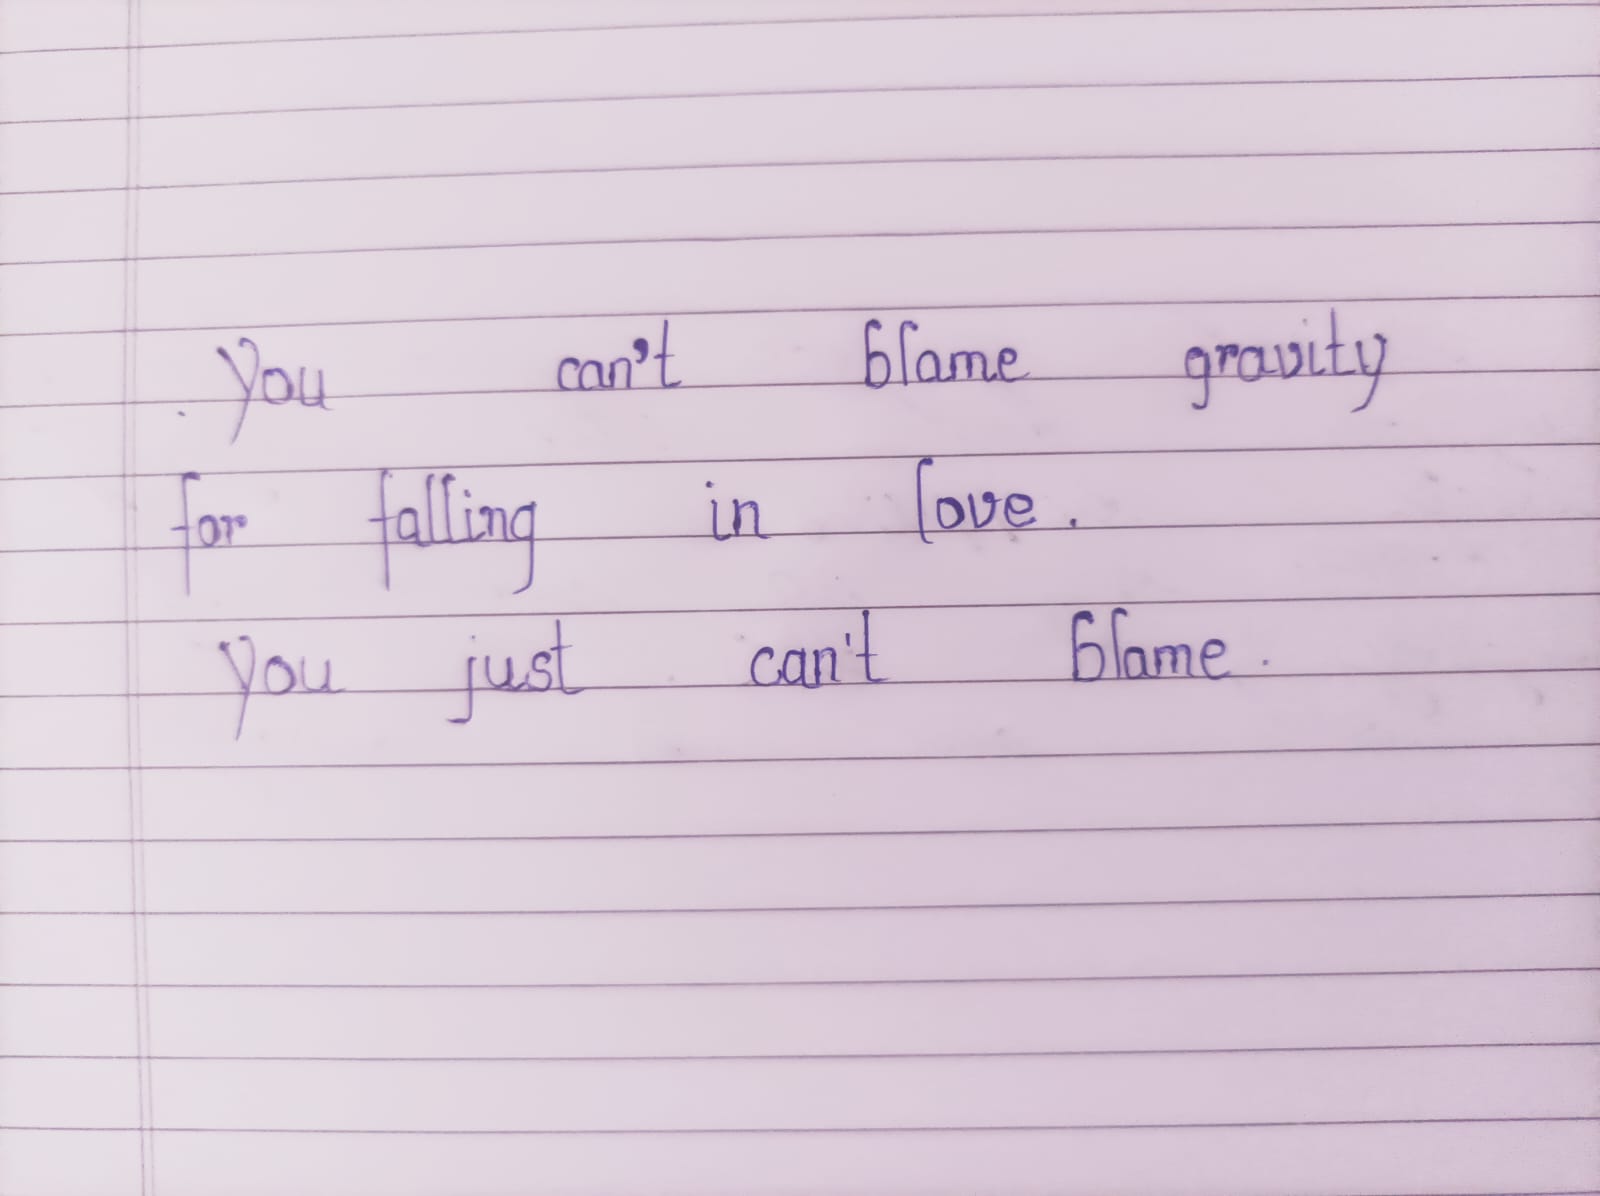 You can't blame gravity
for falling in love.
You just can't blame.